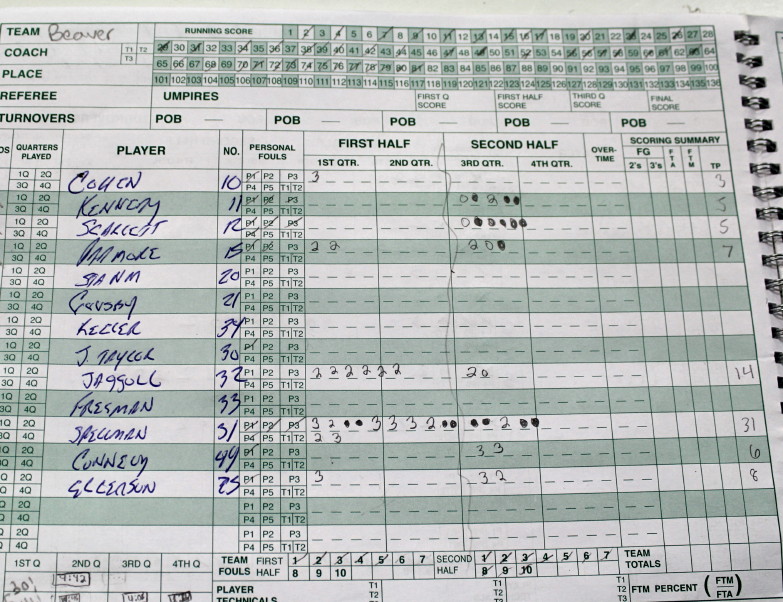 TEAM Beaver RUNNING SCORE 1 2 3 4 5 6 7 8 9 10 11 12 13 14 15 16 17 18 19 20 21 22 23 24 25 26 27 28
COACH T1 T2 T3 29 30 31 32 33 34 35 36 37 38 39 40 41 42 43 44 45 46 47 48 49 50 51 52 53 54 55 56 57 58 59 60 61 62 63 64
65 66 67 68 69 70 71 72 73 74 75 76 77 78 79 80 81 82 83 84 85 86 87 88 89 90 91 92 93 94 95 96 97 98 99 100
PLACE 101 102 103 104 105 106 107 108 109 110 111 112 113 114 115 116 117 118 119 120 121 122 123 124 125 126 127 128 129 130 131 132 133 134 135 136
REFEREE UMPIRES FIRST Q SCORE FIRST HALF SCORE THIRD Q SCORE FINAL SCORE
TURNOVERS POB POB POB POB POB
QUARTERS PLAYED PLAYER NO. PERSONAL FOULS FIRST HALF 1ST QTR. 2ND QTR. SECOND HALF 3RD QTR. 4TH QTR. OVER-TIME SCORING SUMMARY FG 2's 3's FTA FTM TP
1Q 2Q 3Q 4Q COHEN 10 P1 P2 P3 P4 P5 T1 T2 3 3
1Q 2Q 3Q 4Q KENNEDY 11 P1 P2 P3 P4 P5 T1 T2 2 5
1Q 2Q 3Q 4Q 12 P1 P2 P3 P4 P5 T1 T2 5
1Q 2Q 3Q 4Q 15 P1 P2 P3 P4 P5 T1 T2 2 2 2 7
1Q 2Q 3Q 4Q 20 P1 P2 P3 P4 P5 T1 T2
1Q 2Q 3Q 4Q 21 P1 P2 P3 P4 P5 T1 T2
1Q 2Q 3Q 4Q KELLER 34 P1 P2 P3 P4 P5 T1 T2
1Q 2Q 3Q 4Q J. TAYLOR 30 P1 P2 P3 P4 P5 T1 T2
1Q 2Q 3Q 4Q 32 P1 P2 P3 P4 P5 T1 T2 2 2 2 2 2 2 2 14
1Q 2Q 3Q 4Q FREEMAN 33 P1 P2 P3 P4 P5 T1 T2
1Q 2Q 3Q 4Q SPELLMAN 31 P1 P2 P3 P4 P5 T1 T2 3 2 3 3 3 2 2 31
2 3
2Q 4Q 44 P1 P2 P3 P4 P5 T1 T2 3 3 6
2Q 4Q ELLERSON 25 P1 P2 P3 P4 P5 T1 T2 3 3 2 8
2Q 4Q P1 P2 P3 P4 P5 T1 T2
2Q 4Q P1 P2 P3 P4 P5 T1 T2
1ST Q 2ND Q 3RD Q 4TH Q TEAM FOULS FIRST HALF 1 2 3 4 5 6 7 8 9 10 SECOND HALF 1 2 3 4 5 6 7 8 9 10 TEAM TOTALS
PLAYER TECHNICALS T1 T2 T1 T2 T1 T2 T3 FTM PERCENT (FTM/FTA)